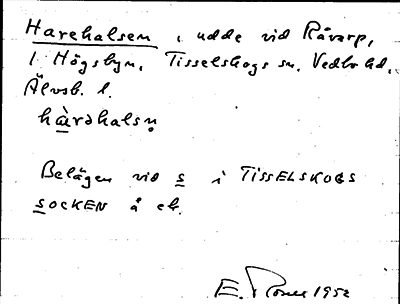 Harehalsen, udde vid Råvarp,
i Högsbyn, Tisselskogs sn, Vedbo hd,
Älvsb. l.
hàrəhalsn̥
Belägen vid s i TISSELSKOGS
SOCKEN å ek.
E. 1952